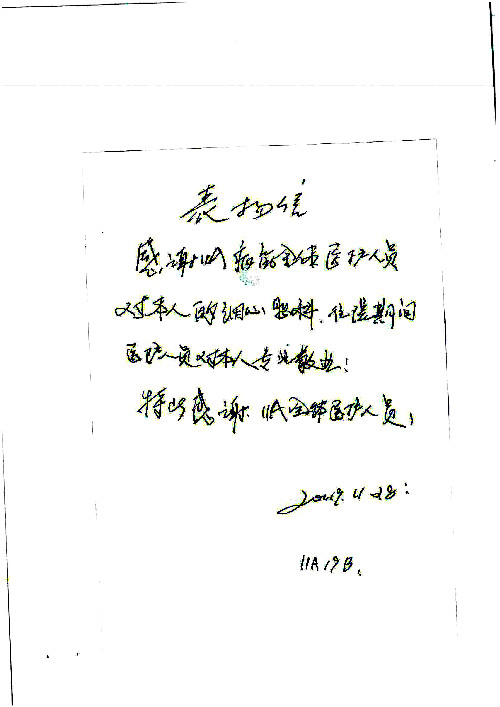 表扬信
感谢11A病室全体医护人员
对本人的细心照料、住院期间
医护人员对本人专业敬业!
特此感谢11A全体医护人员,
2019.11.28
11A19B.